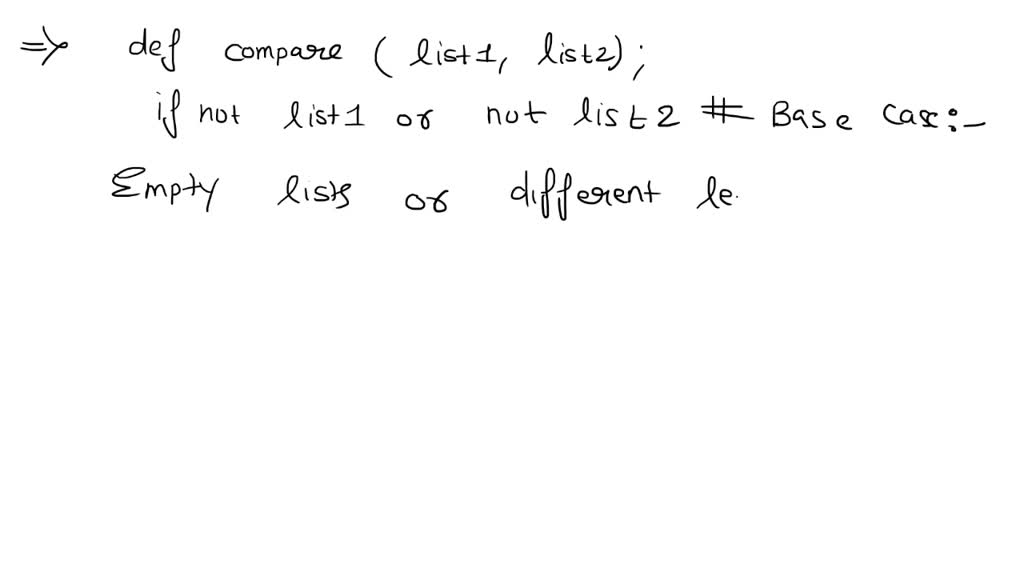 => def compare (list1, list2);
if not list1 or not list2 # Base Case:-
Empty lists or different le